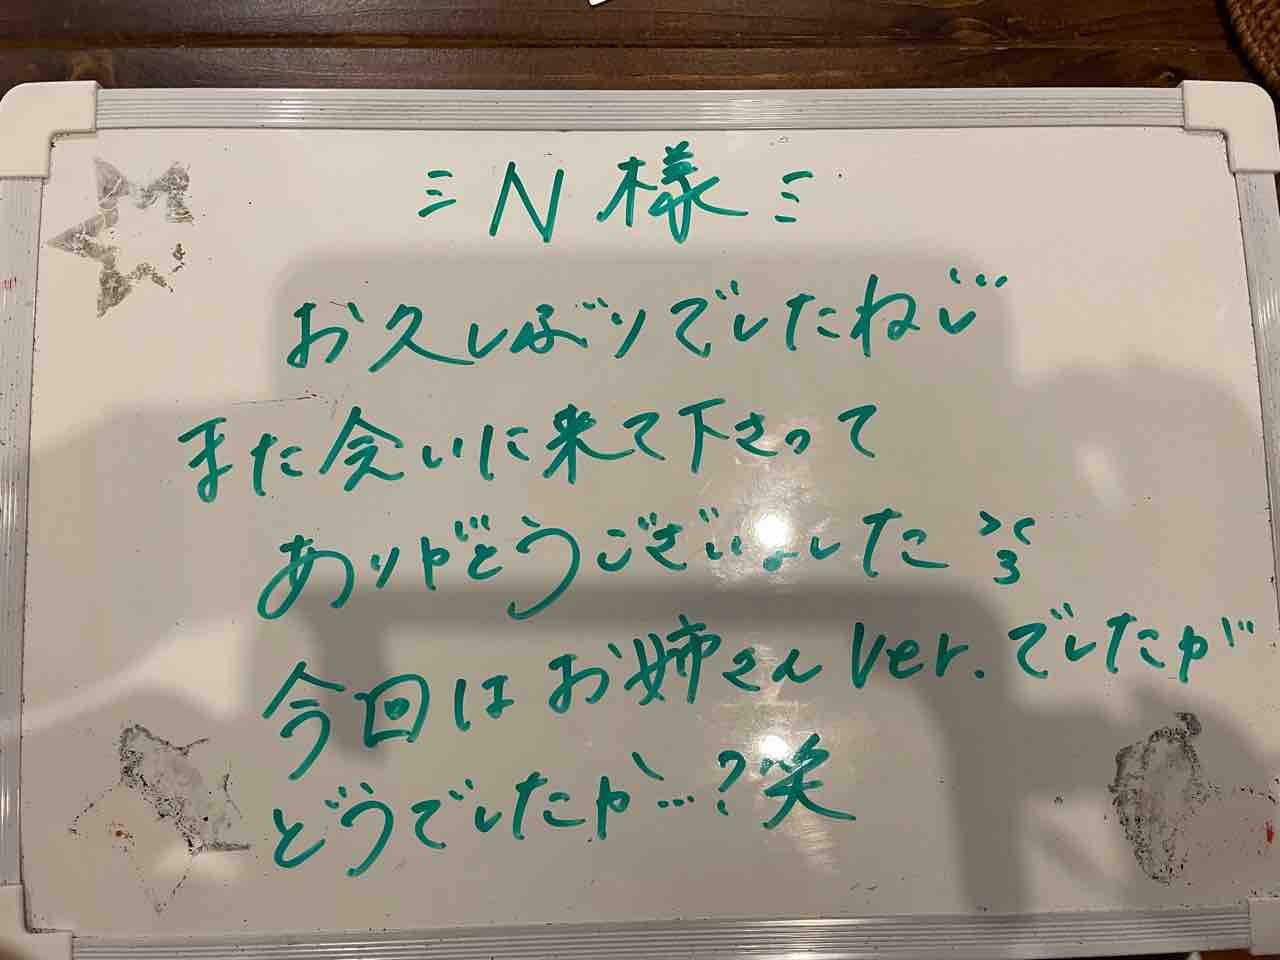 ミN様ミ
お久しぶりでしたね
また会いに来て下さって
ありがとうございました
今回はお姉さんver.でしたが
どうでしたか…?笑